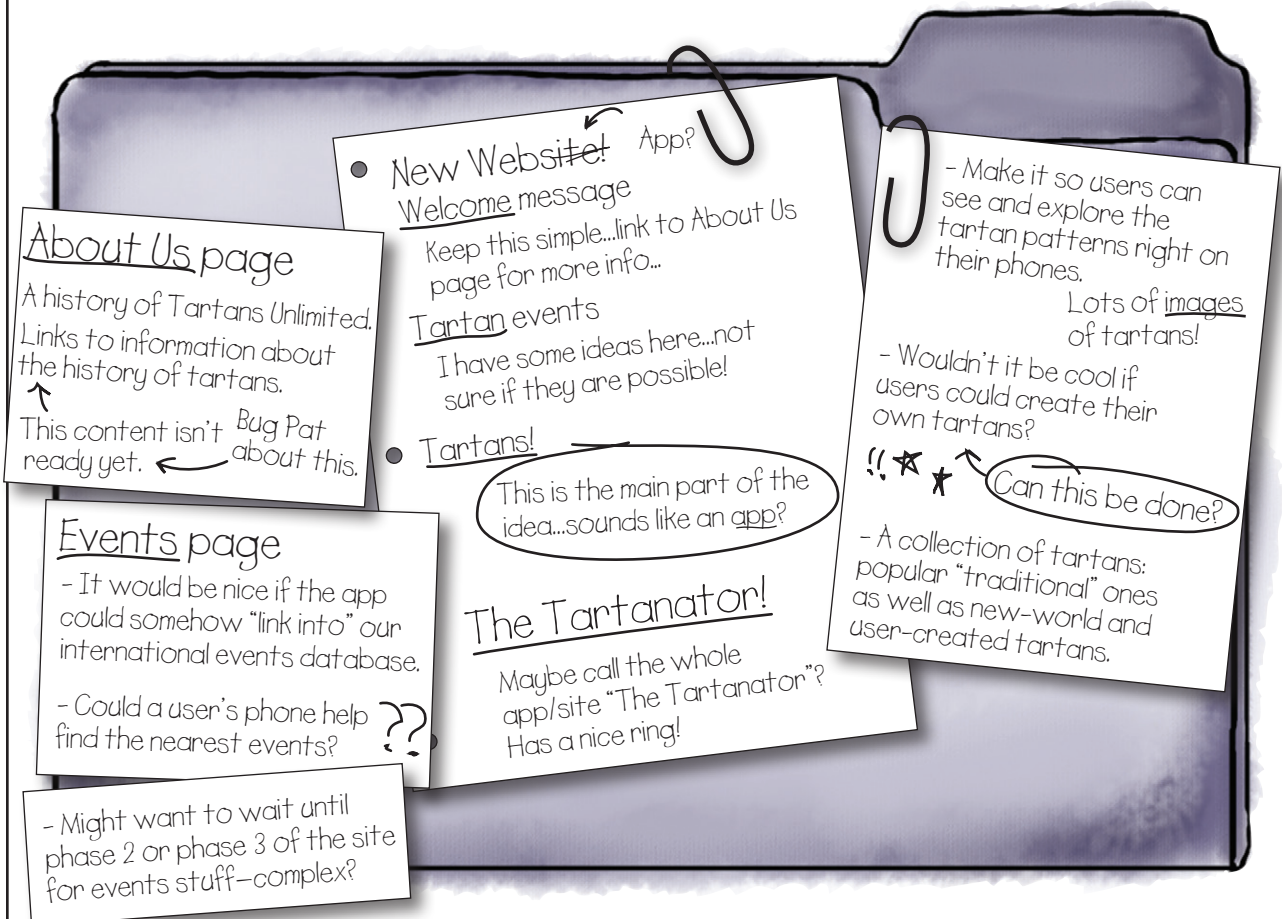 About Us page
A history of Tartans Unlimited.
Links to information about
the history of tartans.
This content isn't
ready yet.
Bug Pat
about this.
Events page
- It would be nice if the app
could somehow "link into" our
international events database.
- Could a user's phone help
find the nearest events?
??
- Might want to wait until
phase 2 or phase 3 of the site
for events stuff—complex?
New Website!
App?
Welcome message
Keep this simple...link to About Us
page for more info...
Tartan events
I have some ideas here...not
sure if they are possible!
Tartans!
This is the main part of the
idea...sounds like an app?
The Tartanator!
Maybe call the whole
app/site "The Tartanator"?
Has a nice ring!
- Make it so users can
see and explore the
tartan patterns right on
their phones.
Lots of images
of tartans!
- Wouldn't it be cool if
users could create their
own tartans?
!!
Can this be done?
- A collection of tartans:
popular "traditional" ones
as well as new-world and
user-created tartans.